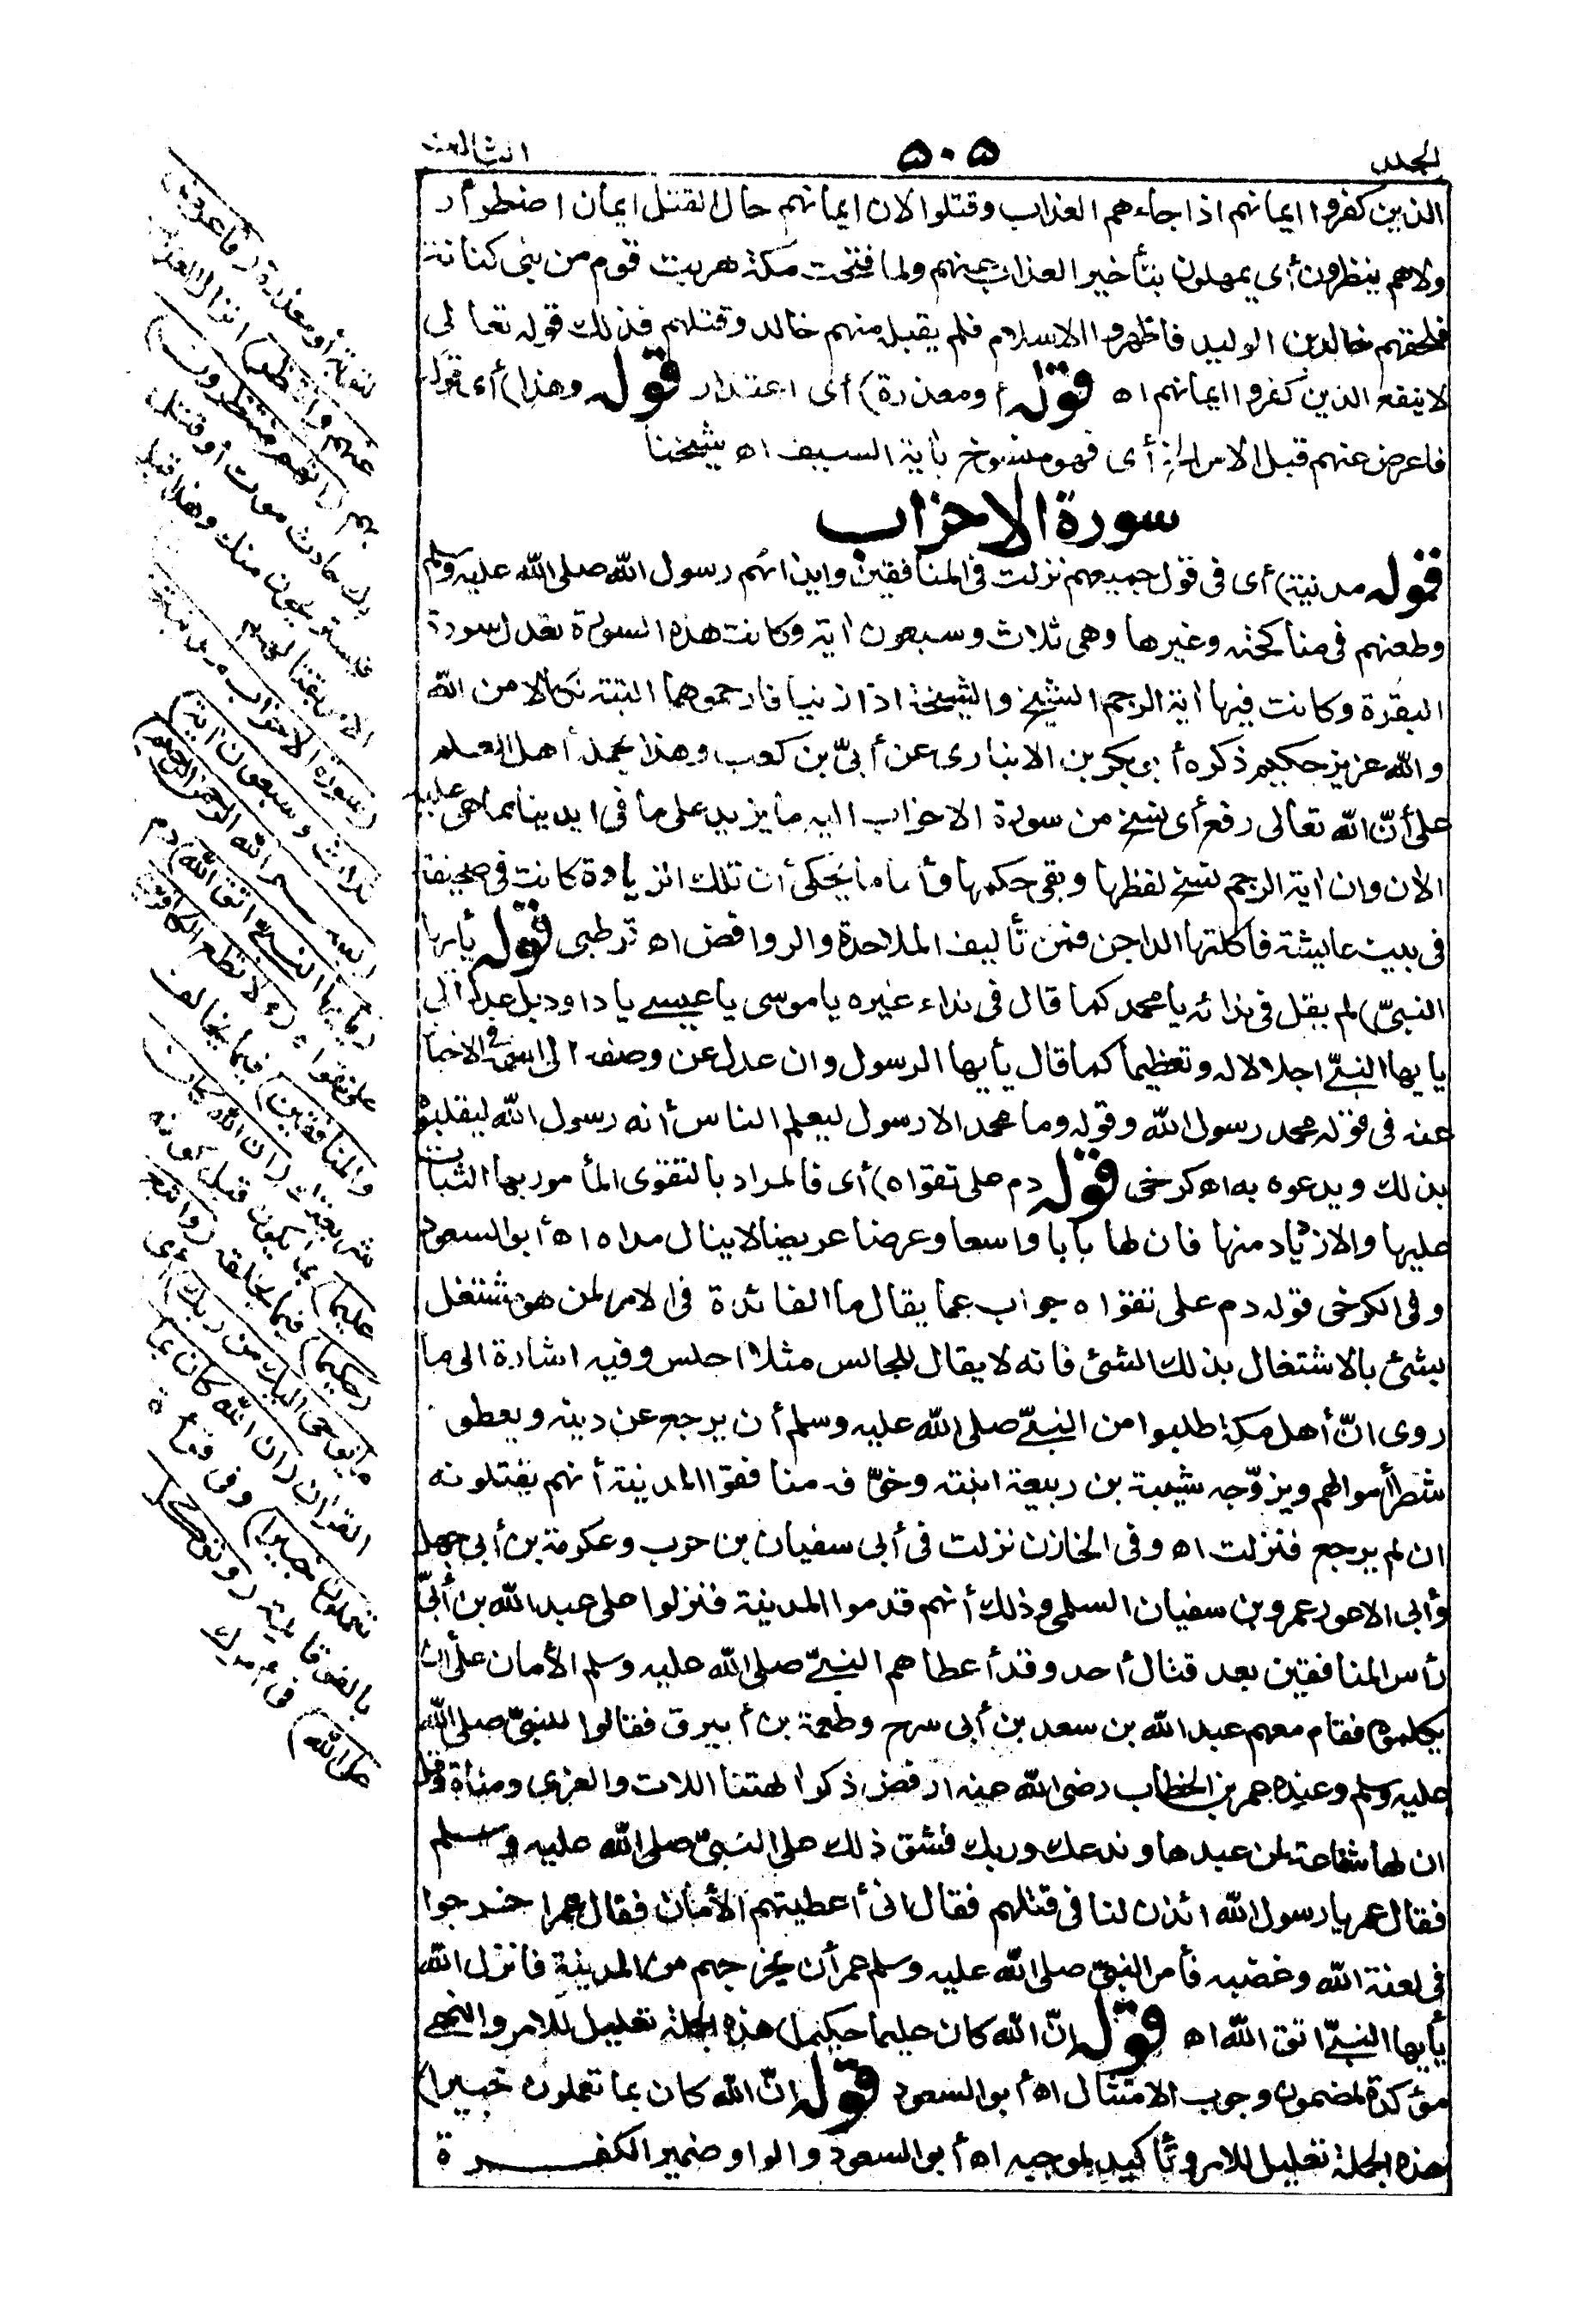 المجلد
٥٠٥
الثالث
الذين كفروا ايمانهم اذا جاءهم العذاب وقتلوا لان ايمانهم حال القتل ايمان اضطرار
ولاهم ينظرون أي يمهلون بتأخير العذاب عنهم ولما فتحت مكة هربت قوم من بني كنانة
فلحقهم خالد بن الوليد فاظهروا الاسلام فلم يقبل منهم خالد وقتلهم فذلك قوله تعالى
لا ينفع الذين كفروا ايمانهم اه قوله أو معذرة) أى اعتذار قوله وهذا) أى قوله
فاعرض عنهم قبل الامر الخ أى فهو منسوخ بآية السيف اه شيخنا
سورة الاحزاب
قوله مدنية) أى فى قول جميعهم نزلت فى المنافقين وايذائهم رسول الله صلى الله عليه وسلم
وطعنهم فى مناكحته وغيرها وهى ثلاث وسبعون اية وكانت هذه السورة تعدل سورة
البقرة وكانت فيها اية الرجم الشيخ والشيخة اذا زنيا فارجموهما البتة نكالا من الله
والله عزيز حكيم ذكره أبى بكر بن الانبارى عن أبىّ بن كعب وهذا يحمله أهل العلم
على أنّ الله تعالى رفع أى نسخ من سورة الاحزاب اليه ما يزيد على ما فى ايدينا مما هى عليه
الان وان اية الرجم نسخ لفظها وبقى حكمها وأما ما يحكى أن تلك الزيادة كانت فى صحيفة
فى بيت عايشة فاكلتها الداجن فمن تأليف الملاحدة والروافض اه قرطبى قوله يأيها
النبىّ) لم يقل فى ندائه يا محمد كما قال فى نداء غيره يا موسى يا عيسى يا داود بل عدل الى
يا يها النبىّ اجلالا له وتعظيما كما قال يأيها الرسول وان عدل عن وصفه الى اسمه فى الاخبا
عنه فى قوله محمد رسول الله وقوله وما محمد الا رسول ليعلم الناس أنه رسول الله ليقلبوه
بذلك ويدعوه به اه كرخى قوله دم على تقواه) أى فالمراد بالتقوى المأمور بها الثبات
عليها والازدياد منها فان لها بابا واسعا وعرضا عريضا لا ينال مداه اه أبو السعود
وفى الكرخى قوله دم على تقواه جواب عما يقال ما الفائدة فى الامر لمن هو مشتغل
بشئ بالاشتغال بذلك الشئ فانه لا يقال للجالس مثلا اجلس وفيه اشارة الى ما
روى انّ أهل مكة طلبوا من النبىّ صلى الله عليه وسلم أن يرجع عن دينه ويعطوه
شطر أموالهم ويزوّجه شيبة بن ربيعة ابنته وخوّفه منافقوا المدينة أنهم يقتلونه
ان لم يرجع فنزلت اه وفى الخازن نزلت فى أبى سفيان بن حرب وعكرمة بن أبى جهل
وأبى الاعور عمرو بن سفيان السلمى وذلك أنهم قدموا المدينة فنزلوا على عبد الله بن أبىّ
رأس المنافقين بعد قتال أحد وقد أعطاهم النبىّ صلى الله عليه وسلم الأمان على أن
يكلموه فقام معهم عبد الله بن سعد بن أبى سرح وطعمة بن أبيرق فقالوا للنبىّ صلى الله
عليه وسلم وعنده عمر بن الخطاب رضى الله عنه ارفض ذكر الهتنا اللات والعزى ومناة وقل
ان لها شفاعة لمن عبدها وندعك وربك فشق ذلك على النبىّ صلى الله عليه وسلم
فقال عمر يا رسول الله ائذن لنا فى قتلهم فقال انى أعطيتهم الأمان فقال عمر اخرجوا
فى لعنة الله وغضبه فأمر النبىّ صلى الله عليه وسلم عمر أن يخرجهم من المدينة فانزل الله
يأيها النبىّ اتق الله اه قوله انّ الله كان عليما حكيما) هذه الجملة تعليل للامر والنهى
مؤكدة لمضمون وجوب الامتثال اه أبو السعود قوله انّ الله كان بما تعملون خبيرا)
هذه الجملة تعليل للامر وتأكيد لموجبه اه أبو السعود والواو ضمير الكفرة
توبة أو معذرة (فاعرض
عنهم وانتظر) انزال العذاب
بهم (انهم منتظرون)
بك حادث موت أو قتل
فيستريحون منك وهذا قبل
الامر بقتالهم
(سورة الاحزاب مدنية
ثلاث وسبعون اية)
(بسم الله الرحمن الرحيم)
(يأيها النبىّ اتق الله) دم
على تقواه (ولا تطع الكافرين
والمنافقين) فيما يخالف
شريعتك (ان الله كان
عليما) بما يكون قبل كونه
(حكيما) فيما يخلقه (واتبع
ما يوحى اليك من ربك) أى
القرآن (ان الله كان بما
تعملون خبيرا) وفى قراءة
بالفوقانية (وتوكل
على الله) فى أمرك